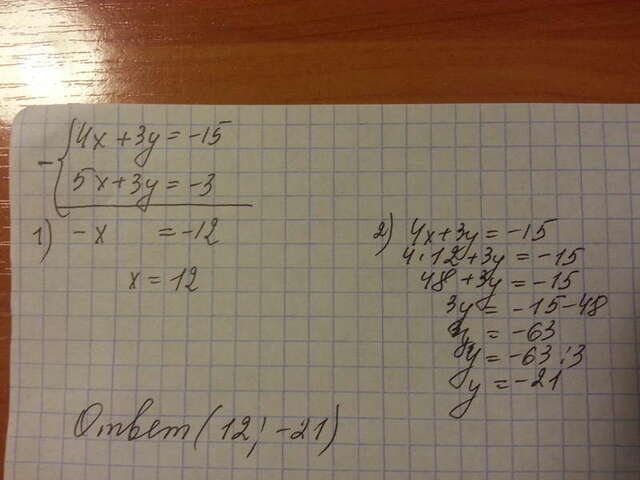 - { 4x + 3y = -15
5x + 3y = -3
1) -x = -12
x = 12
2) 4x + 3y = -15
4·12 + 3y = -15
48 + 3y = -15
3y = -15 - 48
3y = -63
y = -63 : 3
y = -21
Ответ (12; -21)